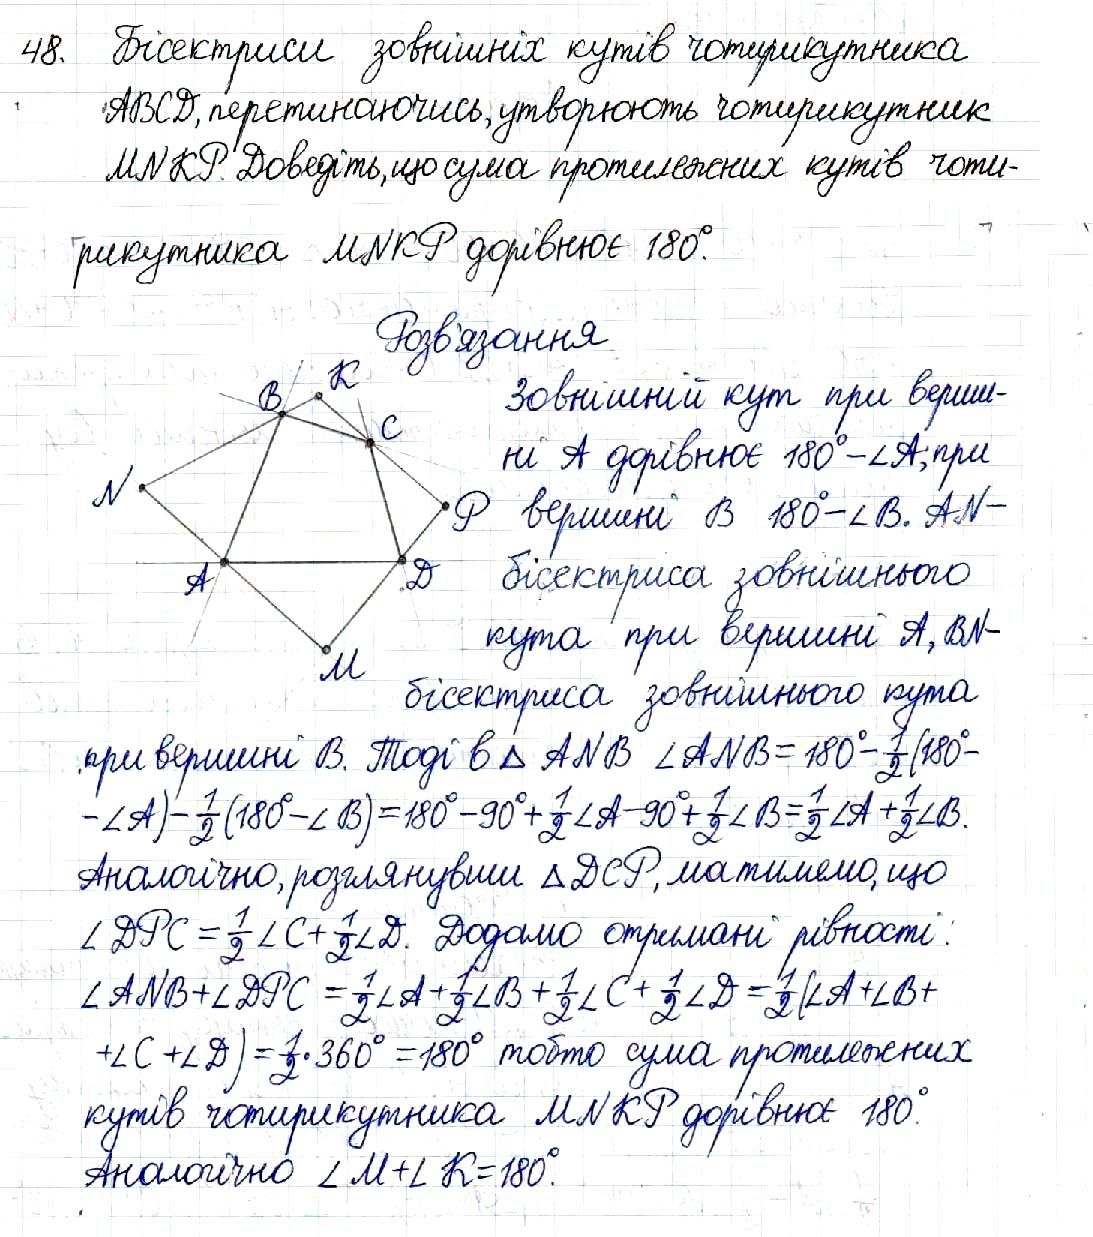 48. Бісектриси зовнішніх кутів чотирикутника
ABCD, перетинаючись, утворюють чотирикутник
MNKP. Доведіть, що сума протилежних кутів чоти-
рикутника MNKP дорівнює 180°.
Розв'язання
B K C N P A D M
Зовнішній кут при верши-
ні A дорівнює 180° - ∠A; при
вершині B 180° - ∠B. AN -
бісектриса зовнішнього
кута при вершині A, BN -
бісектриса зовнішнього кута
при вершині B. Тоді в △ ANB ∠ANB = 180° - 1/2(180° -
- ∠A) - 1/2(180° - ∠B) = 180° - 90° + 1/2∠A - 90° + 1/2∠B = 1/2∠A + 1/2∠B.
Аналогічно, розглянувши △DCP, матимемо, що
∠DPC = 1/2∠C + 1/2∠D. Додамо отримані рівності:
∠ANB + ∠DPC = 1/2∠A + 1/2∠B + 1/2∠C + 1/2∠D = 1/2(∠A + ∠B +
+ ∠C + ∠D) = 1/2 · 360° = 180° тобто сума протилежних
кутів чотирикутника MNKP дорівнює 180°.
Аналогічно ∠M + ∠K = 180°.